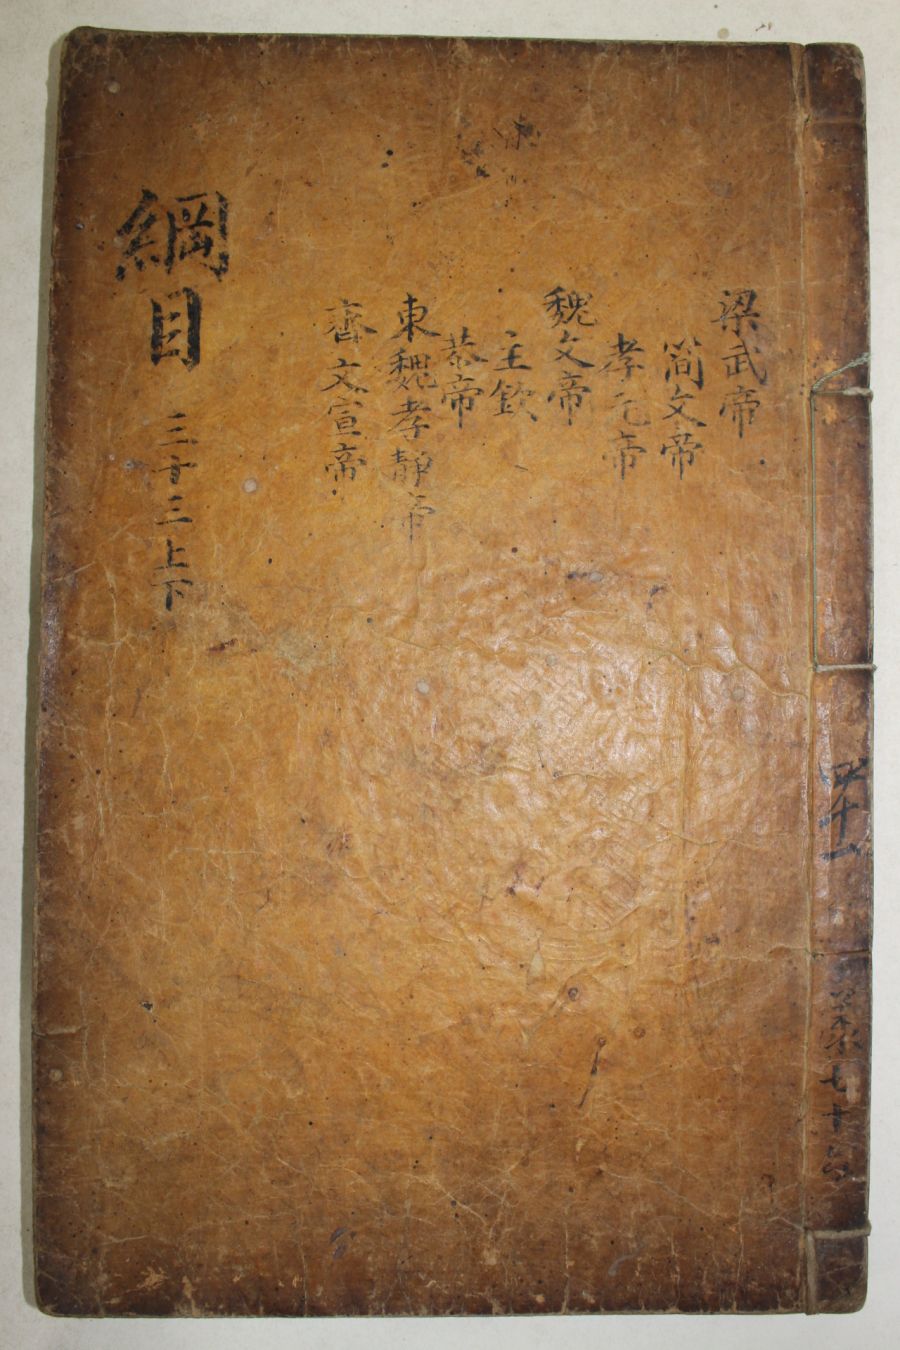 梁武帝
簡文帝
孝元帝
魏文帝
主欽
恭帝
東魏孝靜帝
齊文宣帝
綱目
三十三上下
四十一
共七十